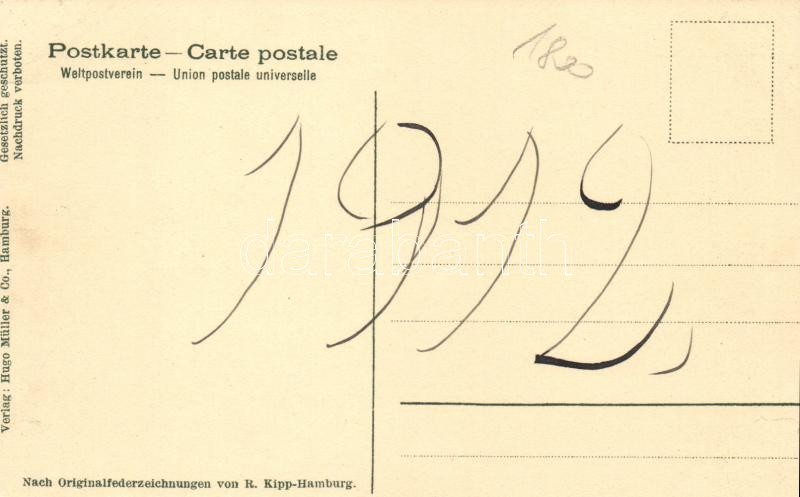 Postkarte — Carte postale
Weltpostverein — Union postale universelle
1800
1912
darabanth
Gesetzlich geschützt.
Nachdruck verboten.
Verlag: Hugo Müller & Co., Hamburg.
Nach Originalfederzeichnungen von R. Kipp-Hamburg.